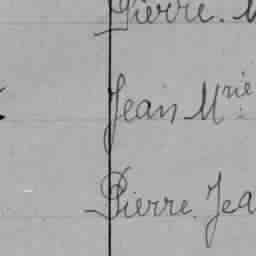 Pierre. M
Jean Mrie
Pierre Jea